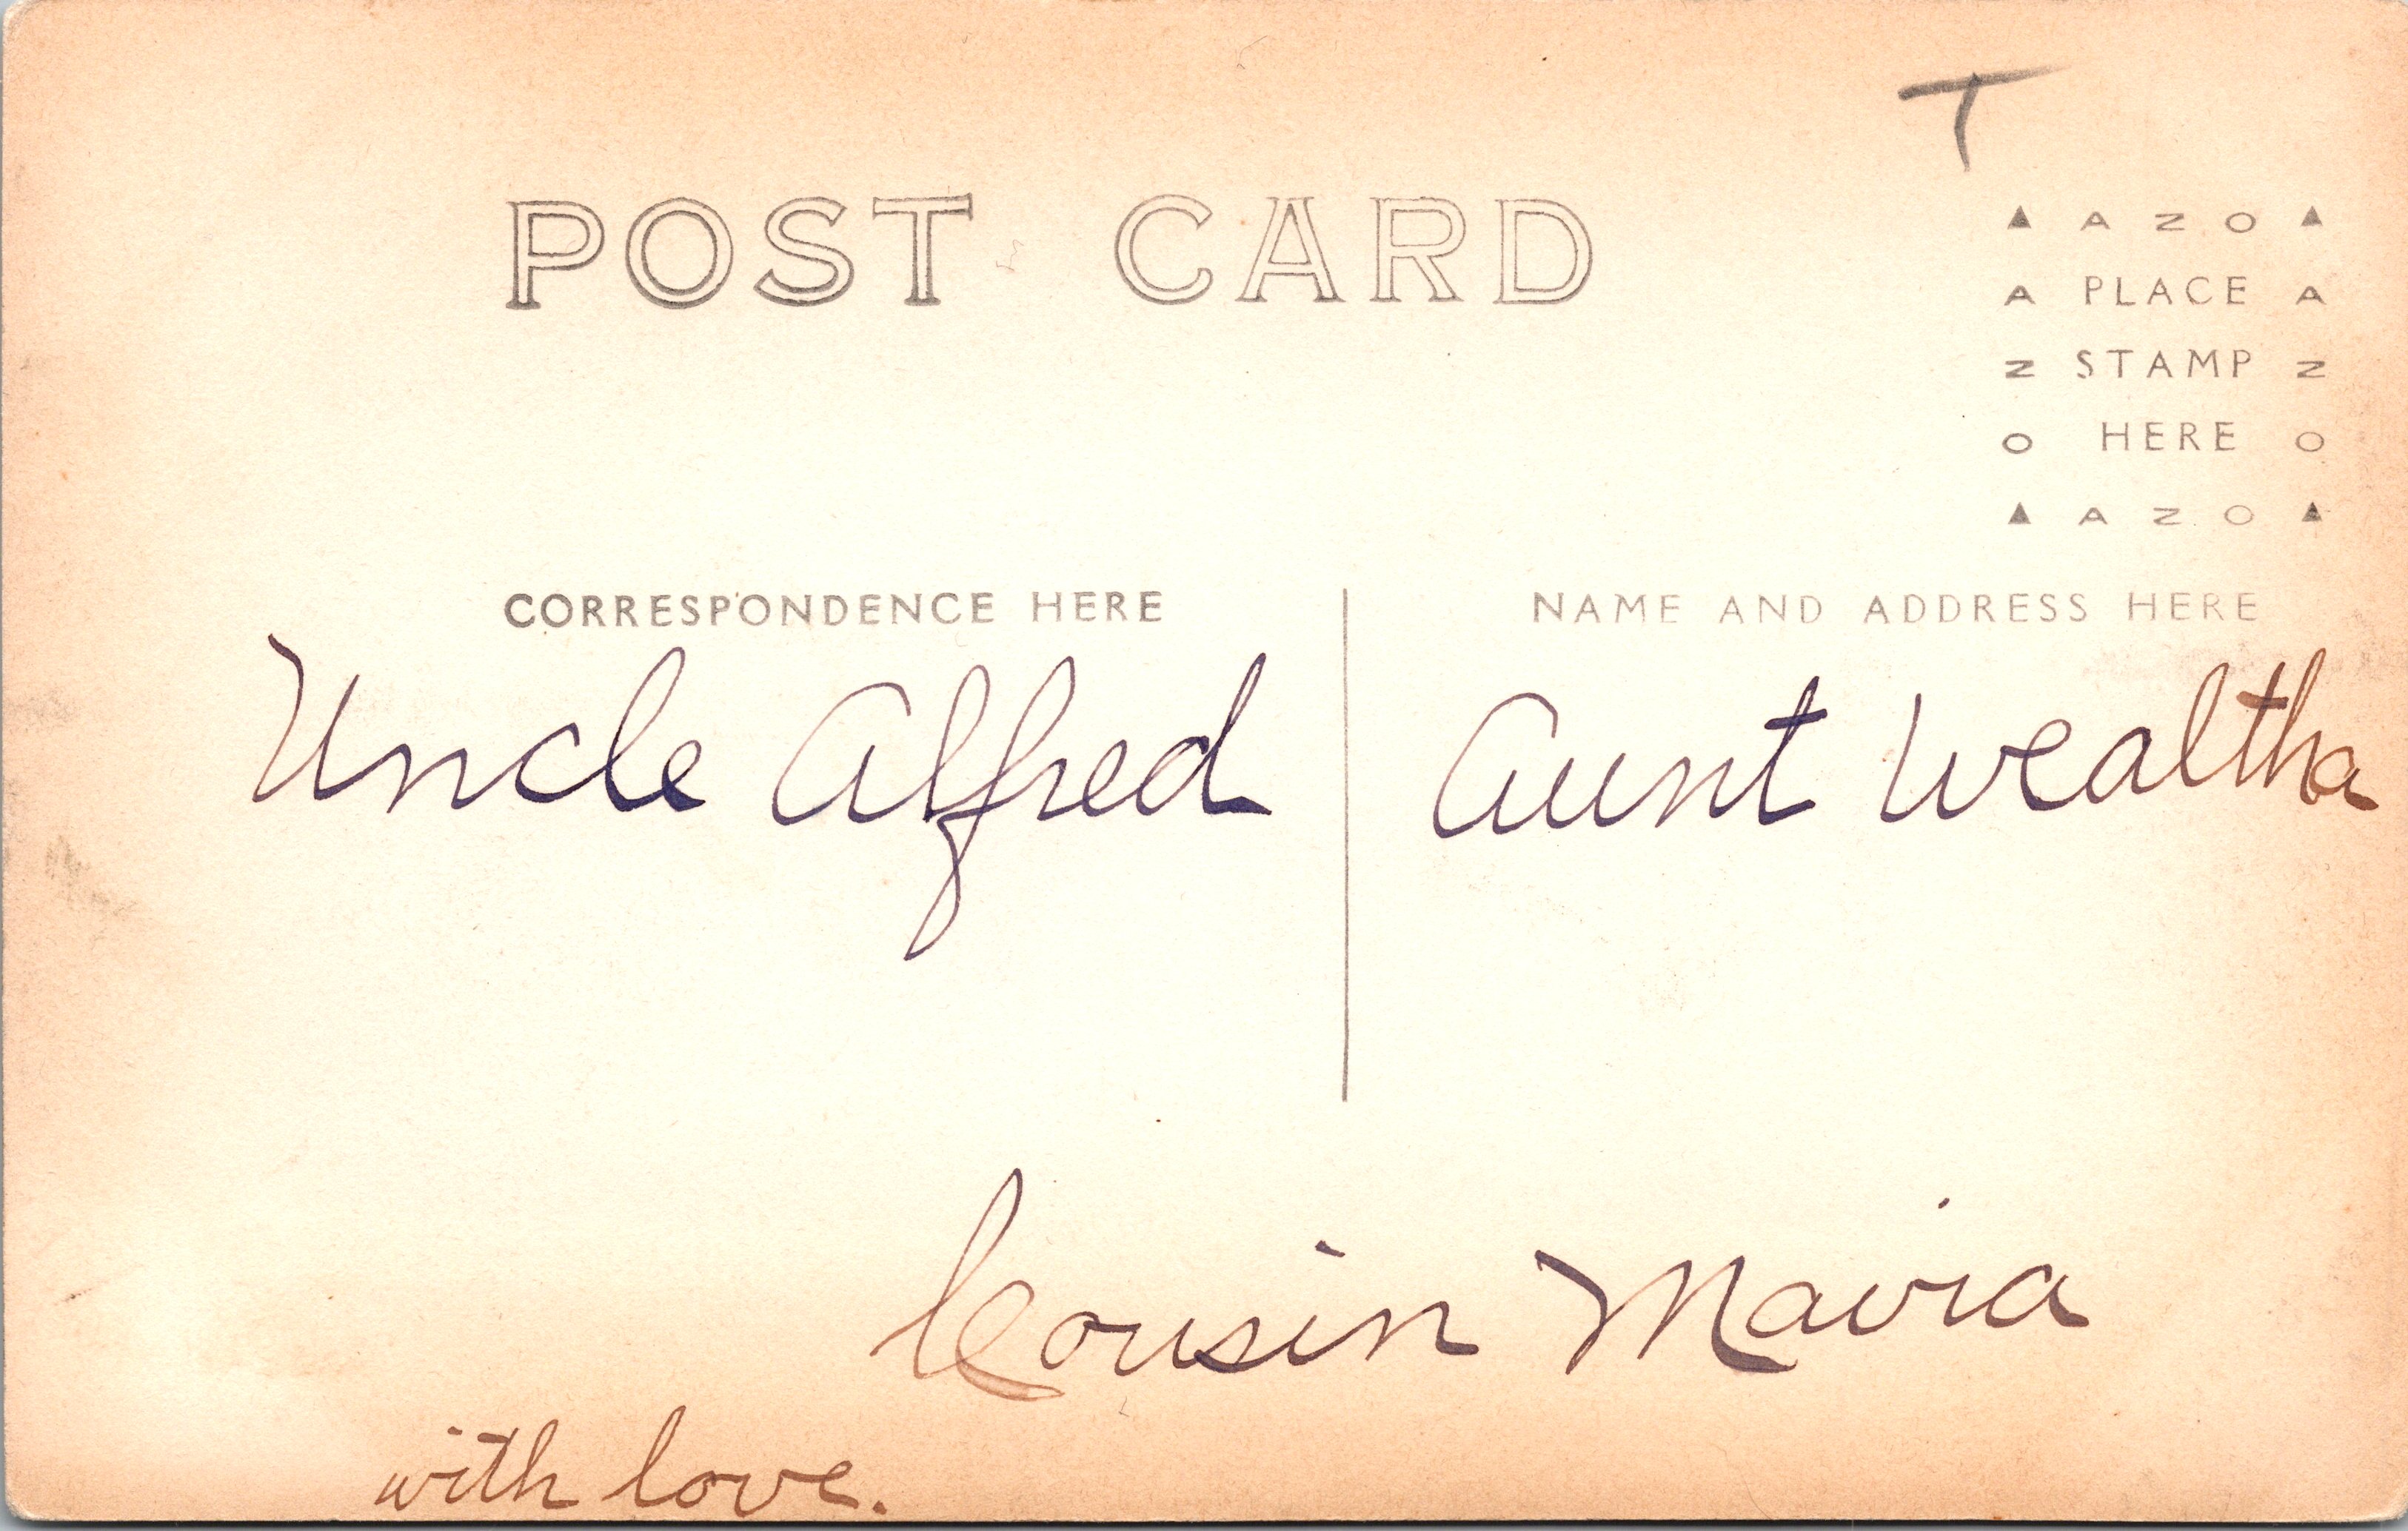 T
POST CARD
▲ A Z O ▲
A PLACE A
Z STAMP Z
O HERE O
▲ A Z O ▲
CORRESPONDENCE HERE
NAME AND ADDRESS HERE
Uncle Alfred
Aunt Wealtha
Cousin Mavia
with love.